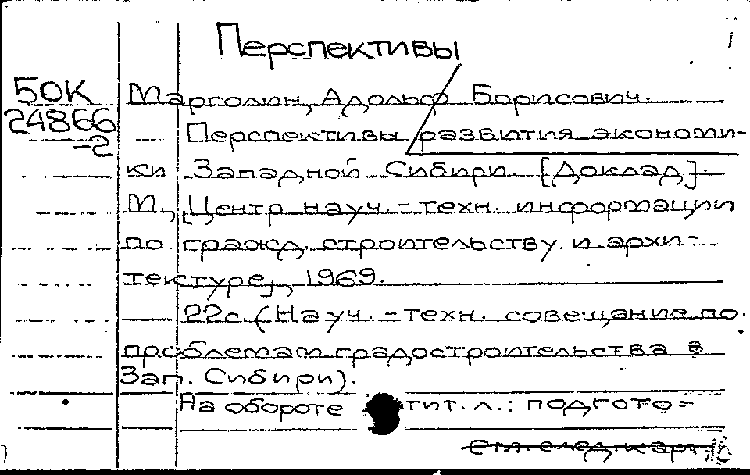 Перспективы
50К
24866
-2
Марголин, Адольф Борисович.
Перспективы развития экономи-
ки Западной Сибири. [Доклад].
М., [Центр науч.-техн. информации
по гражд. строительству и архи-
тектуре], 1969.
22с. (Науч.-техн. совещание по
проблемам градостроительства в
Зап. Сибири).
На обороте тит. л.: подгото-
см. след. карт.